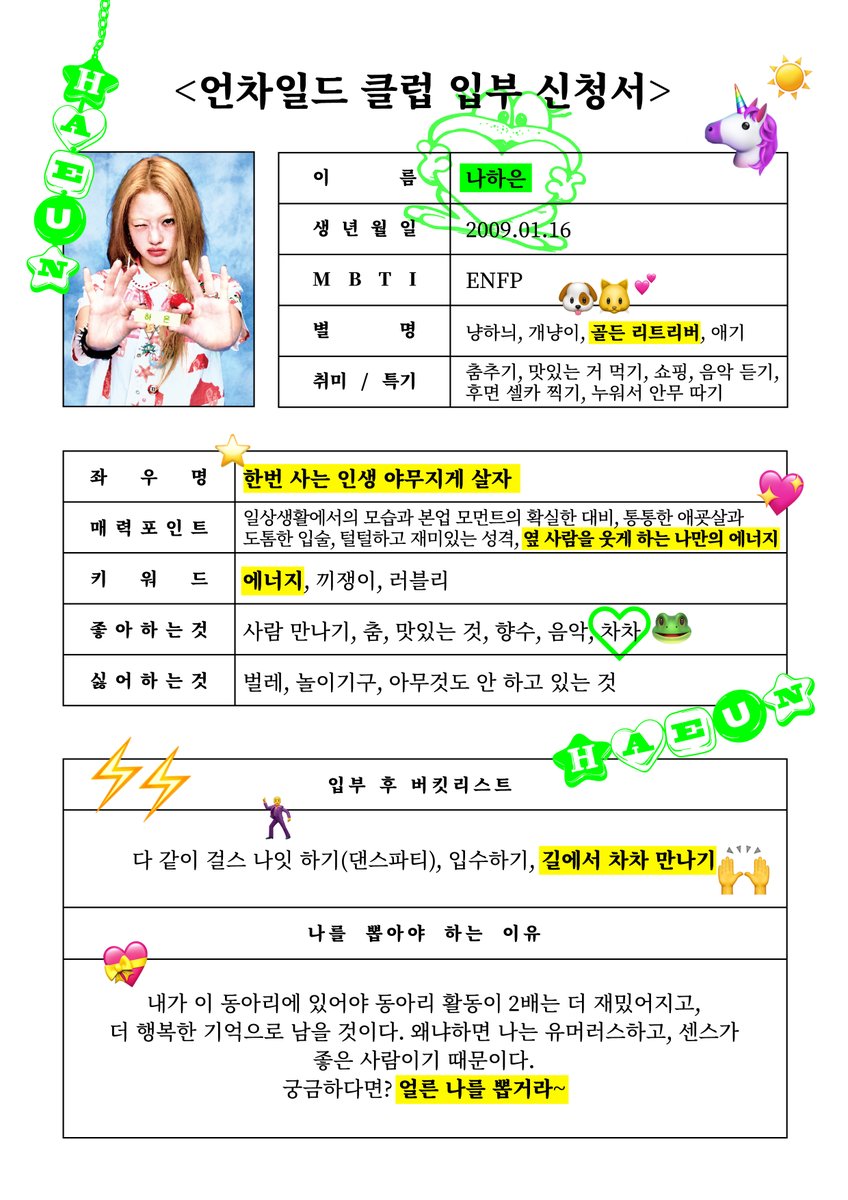 HAEUN
<언차일드 클럽 입부 신청서>
하은
이 름 나하은
생년월일 2009.01.16
MBTI ENFP
별 명 냥하늬, 개냥이, 골든 리트리버, 애기
취미 / 특기 춤추기, 맛있는 거 먹기, 쇼핑, 음악 듣기,
후면 셀카 찍기, 누워서 안무 따기
좌 우 명 한번 사는 인생 야무지게 살자
매력포인트 일상생활에서의 모습과 본업 모먼트의 확실한 대비, 통통한 애굣살과
도톰한 입술, 털털하고 재미있는 성격, 옆 사람을 웃게 하는 나만의 에너지
키 워 드 에너지, 끼쟁이, 러블리
좋아하는것 사람 만나기, 춤, 맛있는 것, 향수, 음악, 차차
싫어하는것 벌레, 놀이기구, 아무것도 안 하고 있는 것
HAEUN
입부 후 버킷리스트
다 같이 걸스 나잇 하기(댄스파티), 입수하기, 길에서 차차 만나기
나를 뽑아야 하는 이유
내가 이 동아리에 있어야 동아리 활동이 2배는 더 재밌어지고,
더 행복한 기억으로 남을 것이다. 왜냐하면 나는 유머러스하고, 센스가
좋은 사람이기 때문이다.
궁금하다면? 얼른 나를 뽑거라~